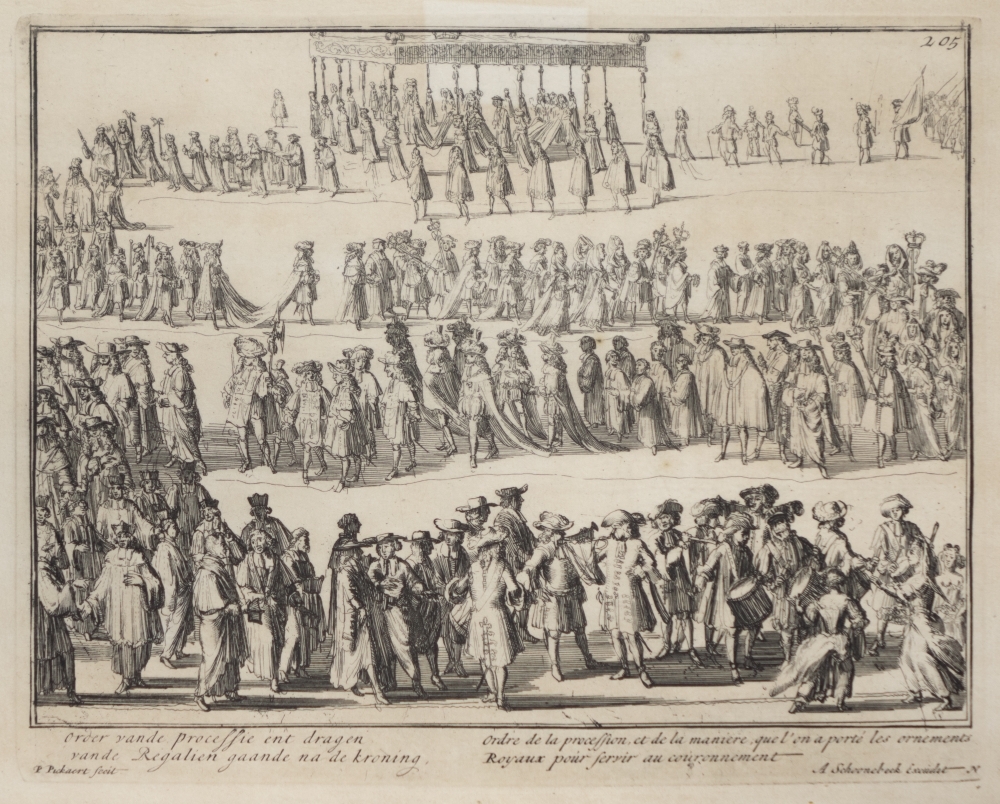 205
Order vande Processie ent dragen
vande Regalien gaande na de kroning.
P. Pickaert fecit
Ordre de la procession, et de la maniere, que l'on a porté les ornements
Royaux pour servir au couronnement
A Schoonebeek Excudit N